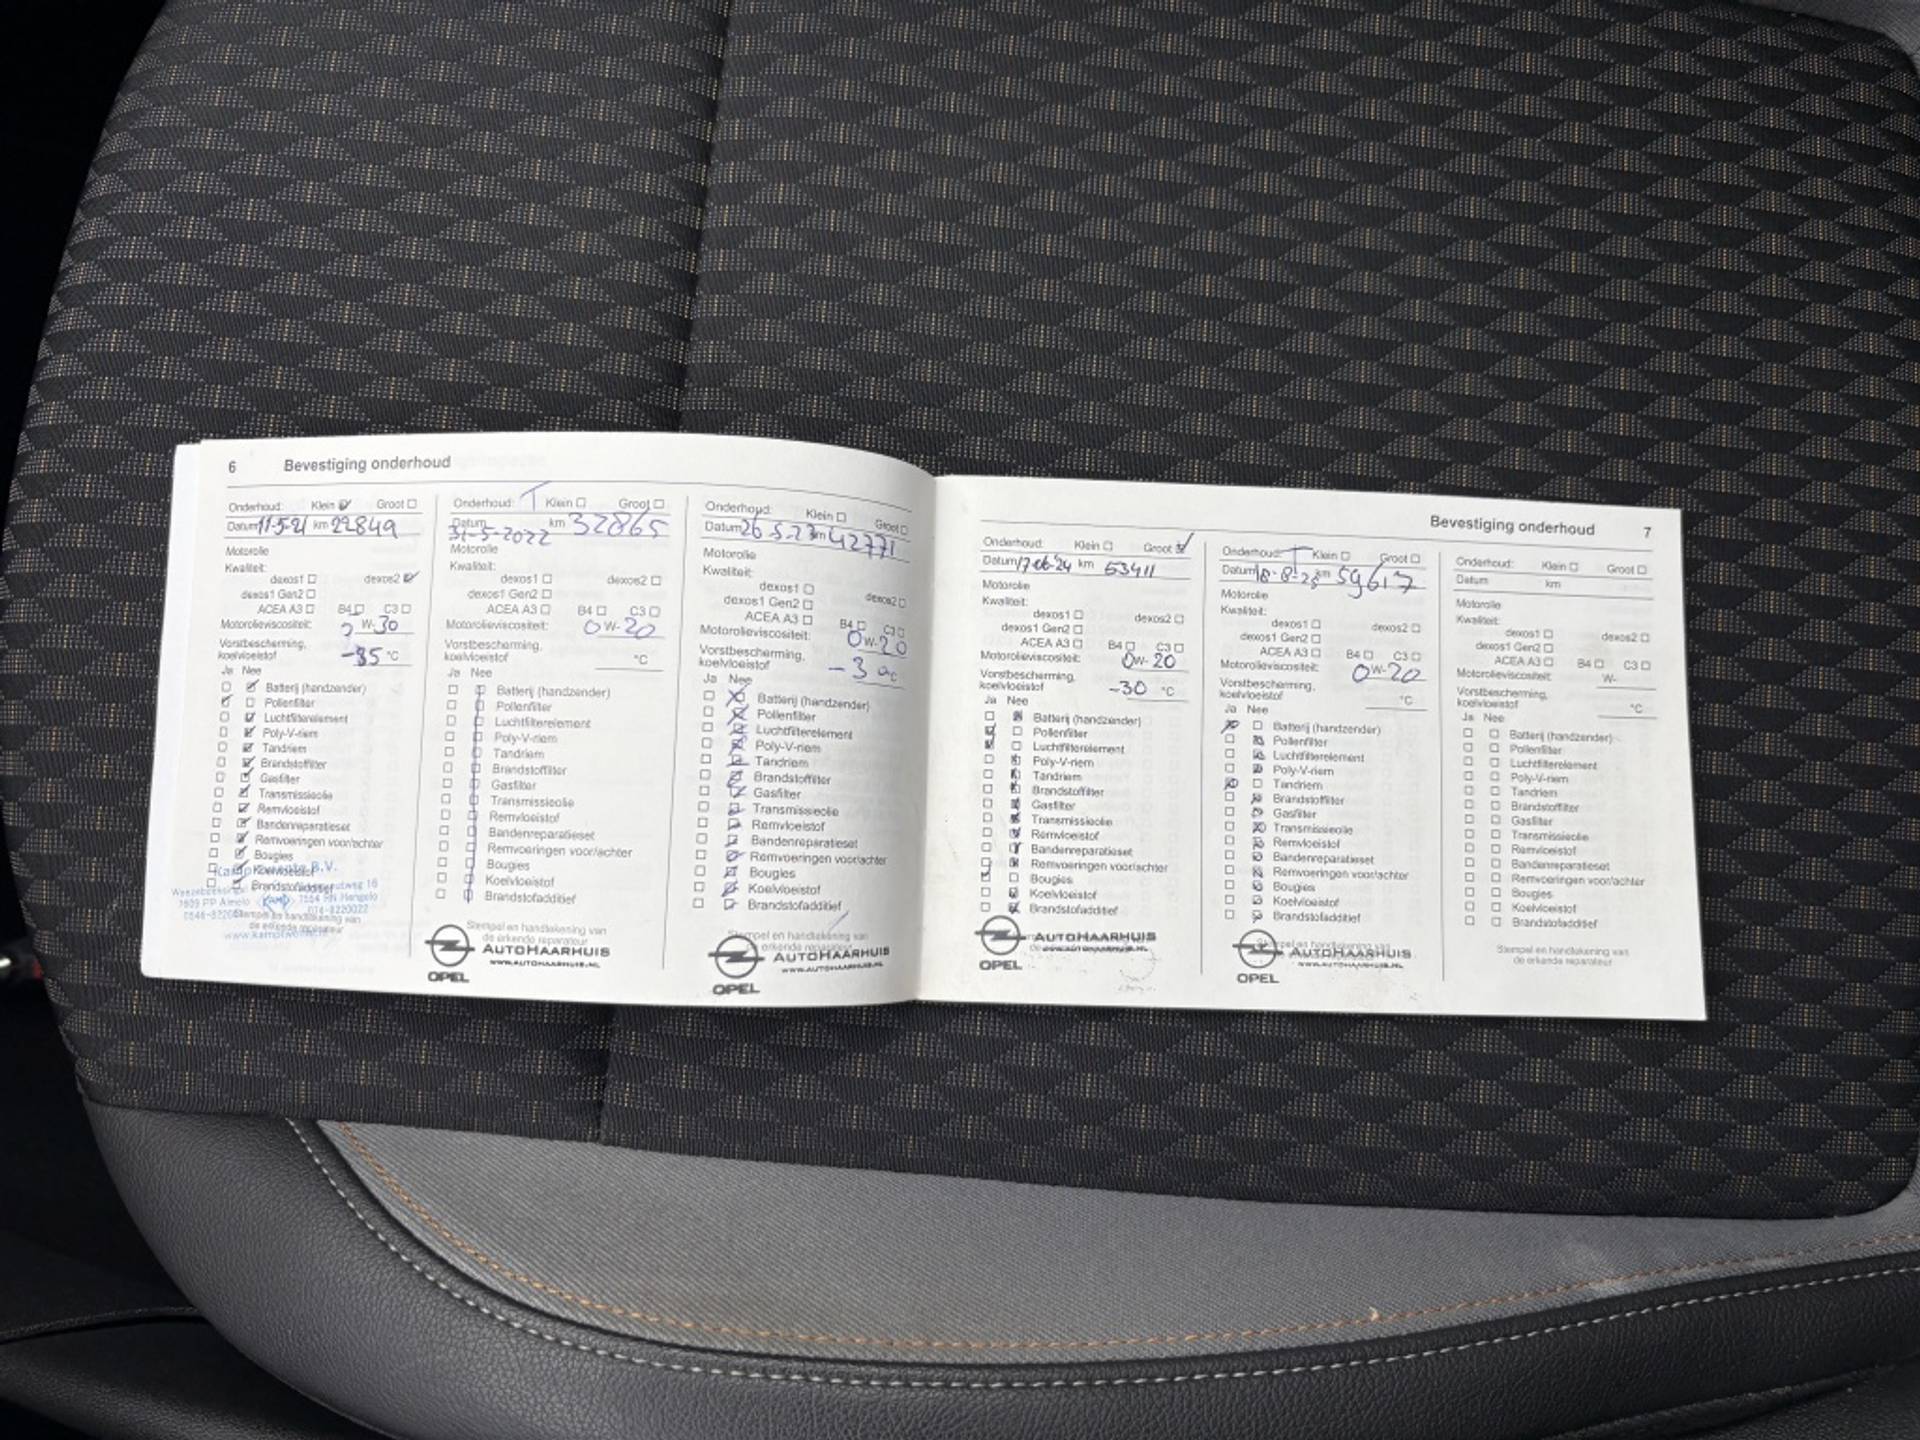 6 Bevestiging onderhoud
Onderhoud: Klein Groot
Datum 11-5-21 km 22849
Motorolie
Kwaliteit:
dexos1 dexos2
dexos1 Gen2
ACEA A3 B4 C3
Motorolieviscositeit: W-30
Vorstbescherming,
koelvloeistof -35 °C
Ja Nee
Batterij (handzender)
Pollenfilter
Luchtfilterelement
Poly-V-riem
Tandriem
Brandstoffilter
Gasfilter
Transmissieolie
Remvloeistof
Bandenreparatieset
Remvoeringen voor/achter
Bougies
Koelvloeistof
Brandstofadditief
7609 PP Almelo 7554 RN Hengelo
074-8220022
Stempel en handtekening van
de erkende reparateur
Onderhoud: T Klein Groot
Datum 31-5-2022 km 32865
Motorolie
Kwaliteit:
dexos1 dexos2
dexos1 Gen2
ACEA A3 B4 C3
Motorolieviscositeit: 0 W-20
Vorstbescherming,
koelvloeistof °C
Ja Nee
Batterij (handzender)
Pollenfilter
Luchtfilterelement
Poly-V-riem
Tandriem
Brandstoffilter
Gasfilter
Transmissieolie
Remvloeistof
Bandenreparatieset
Remvoeringen voor/achter
Bougies
Koelvloeistof
Brandstofadditief
Stempel en handtekening van
de erkende reparateur
AUTOHAARHUIS
WWW.AUTOHAARHUIS.NL
OPEL
Onderhoud: Klein Groot
Datum 26-5-23 km 42771
Motorolie
Kwaliteit:
dexos1 dexos2
dexos1 Gen2
ACEA A3 B4 C3
Motorolieviscositeit: 0 W-20
Vorstbescherming,
koelvloeistof °C
Ja Nee
Batterij (handzender)
Pollenfilter
Luchtfilterelement
Poly-V-riem
Tandriem
Brandstoffilter
Gasfilter
Transmissieolie
Remvloeistof
Bandenreparatieset
Remvoeringen voor/achter
Bougies
Koelvloeistof
Brandstofadditief
Stempel en handtekening van
de erkende reparateur
AUTOHAARHUIS
WWW.AUTOHAARHUIS.NL
OPEL
Bevestiging onderhoud 7
Onderhoud: Klein Groot
Datum 17-06-24 km 53411
Motorolie
Kwaliteit:
dexos1 dexos2
dexos1 Gen2
ACEA A3 B4 C3
Motorolieviscositeit: 0 W-20
Vorstbescherming,
koelvloeistof -30 °C
Ja Nee
Batterij (handzender)
Pollenfilter
Luchtfilterelement
Poly-V-riem
Tandriem
Brandstoffilter
Gasfilter
Transmissieolie
Remvloeistof
Bandenreparatieset
Remvoeringen voor/achter
Bougies
Koelvloeistof
Brandstofadditief
AUTOHAARHUIS
WWW.AUTOHAARHUIS.NL
OPEL
Onderhoud: T Klein Groot
Datum 18-8-25 km 59617
Motorolie
Kwaliteit:
dexos1 dexos2
dexos1 Gen2
ACEA A3 B4 C3
Motorolieviscositeit: 0W-20
Vorstbescherming,
koelvloeistof °C
Ja Nee
Batterij (handzender)
Pollenfilter
Luchtfilterelement
Poly-V-riem
Tandriem
Brandstoffilter
Gasfilter
Transmissieolie
Remvloeistof
Bandenreparatieset
Remvoeringen voor/achter
Bougies
Koelvloeistof
Brandstofadditief
Stempel en handtekening van
AUTOHAARHUIS
WWW.AUTOHAARHUIS.NL
OPEL
Onderhoud: Klein Groot
Datum km
Motorolie
Kwaliteit:
dexos1 dexos2
dexos1 Gen2
ACEA A3 B4 C3
Motorolieviscositeit: W-
Vorstbescherming,
koelvloeistof °C
Ja Nee
Batterij (handzender)
Pollenfilter
Luchtfilterelement
Poly-V-riem
Tandriem
Brandstoffilter
Gasfilter
Transmissieolie
Remvloeistof
Bandenreparatieset
Remvoeringen voor/achter
Bougies
Koelvloeistof
Brandstofadditief
Stempel en handtekening van
de erkende reparateur